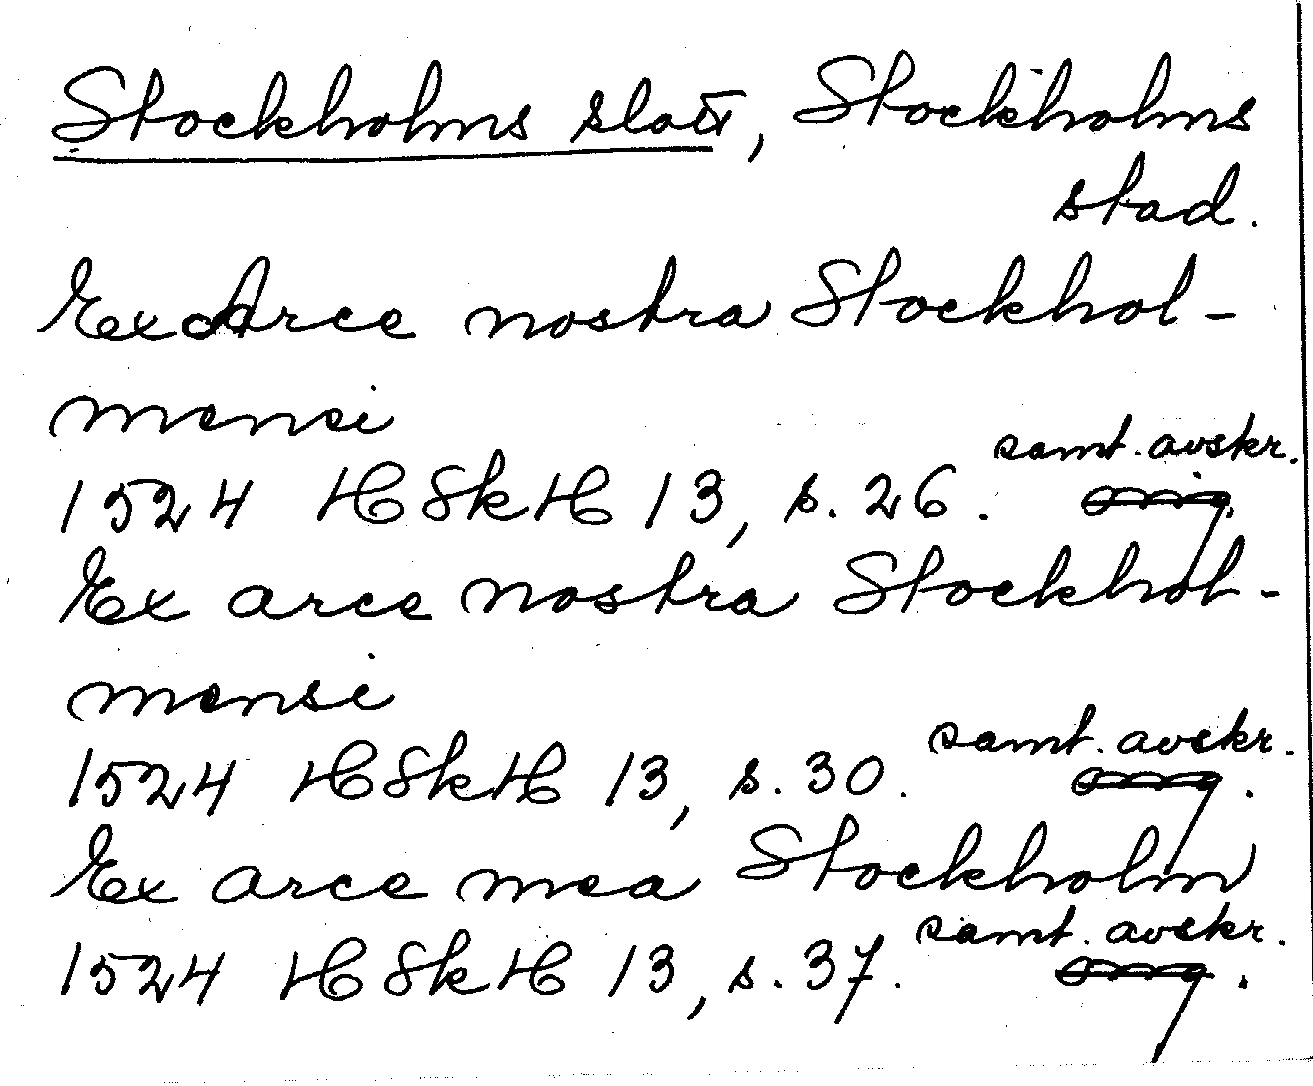 Stockholms slott, Stockholms
stad.
Ex Arce nostra Stockhol-
mensi
samt. avskr.
1524 HSkH 13, s. 26. orig.
Ex arce nostra Stockhol-
mensi
samt. avskr.
1524 HSkH 13, s. 30. orig.
Ex arce mea Stockholm
samt. avskr.
1524 HSkH 13, s. 37. orig.